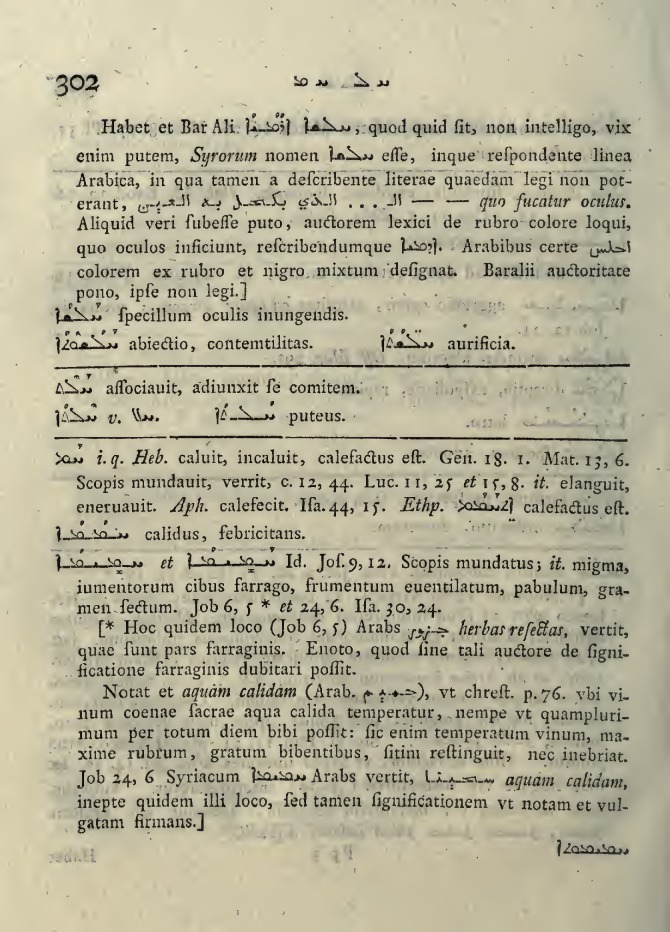 302
ܚܠ ܚܡ
Habet et Bar Ali. ܚܠܣܐ, quod quid ſit, non intelligo, vix
enim putem, Syrorum nomen ܚܠܣܐ eſſe, inque reſpondente linea
Arabica, in qua tamen a deſcribente literae quaedam legi non pot-
erant, الـ . . . الذي يكتحل به العين — — quo fucatur oculus.
Aliquid veri ſubeſſe puto, auctorem lexici de rubro colore loqui,
quo oculos inficiunt, reſcribendumque. Arabibus certe احلس
colorem ex rubro et nigro mixtum deſignat. Baralii auctoritate
pono, ipſe non legi.]
ſpecillum oculis inungendis.
abiectio, contemtilitas. aurificia.
aſſociauit, adiunxit ſe comitem.
v. puteus.
ܚܡ i. q. Heb. caluit, incaluit, calefactus eſt. Gen. 18. 1. Mat. 13, 6.
Scopis mundauit, verrit, c. 12, 44. Luc. 11, 25 et 15, 8. it. elanguit,
eneruauit. Aph. calefecit. Iſa. 44, 15. Ethp. calefactus eſt.
calidus, febricitans.
et Id. Joſ. 9, 12. Scopis mundatus; it. migma,
iumentorum cibus farrago, frumentum euentilatum, pabulum, gra-
men ſectum. Job 6, 5 * et 24, 6. Iſa. 30, 24.
[* Hoc quidem loco (Job 6, 5) Arabs herbas reſectas, vertit,
quae ſunt pars farraginis. Enoto, quod ſine tali auctore de ſigni-
ficatione farraginis dubitari poſſit.
Notat et aquam calidam (Arab.), vt chreſt. p. 76. vbi vi-
num coenae ſacrae aqua calida temperatur, nempe vt quampluri-
mum per totum diem bibi poſſit: ſic enim temperatum vinum, ma-
xime rubrum, gratum bibentibus, ſitim reſtinguit, nec inebriat.
Job 24, 6 Syriacum ܚܡܝܡܐ Arabs vertit, aquam calidam,
inepte quidem illi loco, ſed tamen ſignificationem vt notam et vul-
gatam firmans.]
ܚܡܝܡܘܬܐ